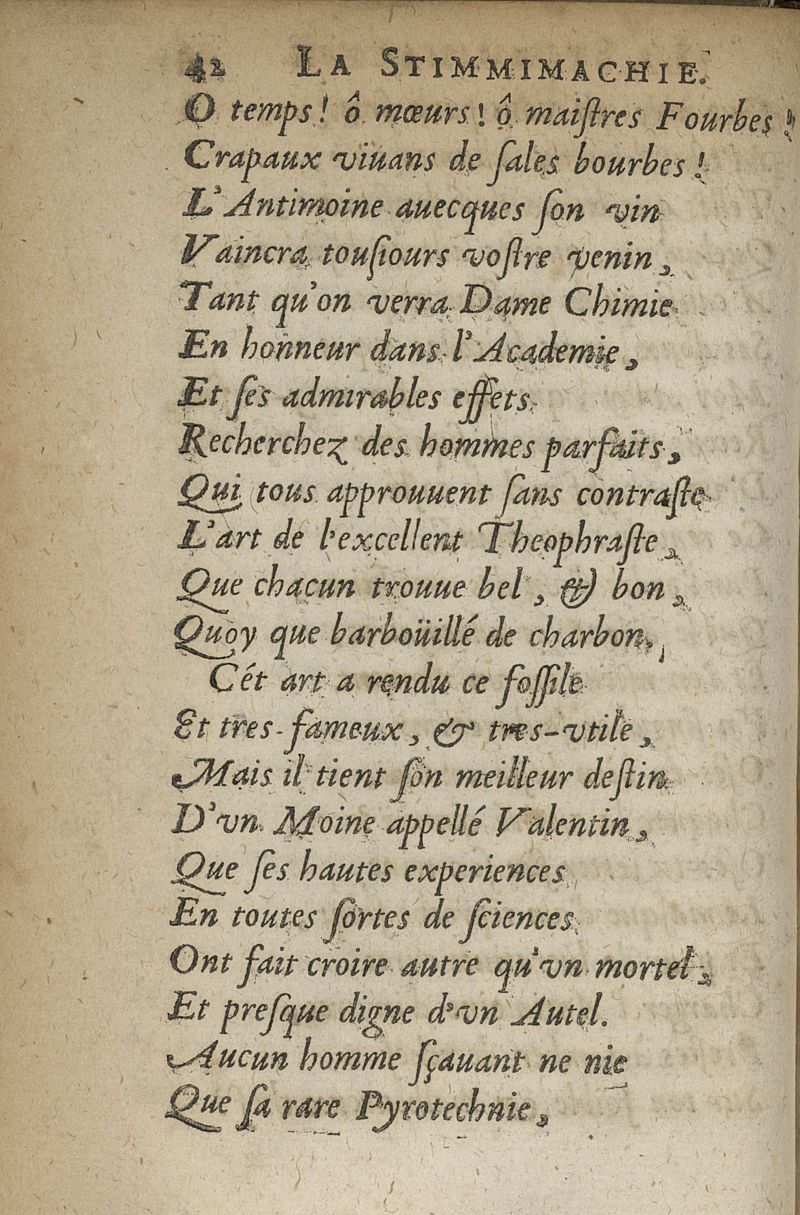 42 LA STIMMIMACHIE.
O temps! ô mœurs! ô maiſtres Fourbes!
Crapaux viuans de ſales bourbes!
L'Antimoine auecques ſon vin
Vaincra touſiours voſtre venin,
Tant qu'on verra Dame Chimie
En honneur dans l'Academie,
Et ſes admirables effets
Recherchez des hommes parfaits,
Qui tous approuuent ſans contraſte
L'art de l'excellent Theophraſte,
Que chacun trouue bel, & bon,
Quoy que barboüillé de charbon,
Cét art a rendu ce foſſile
Et tres-fameux, & tres-vtile,
Mais il tient ſon meilleur deſtin
D'vn Moine appellé Valentin,
Que ſes hautes experiences
En toutes ſortes de ſciences
Ont fait croire autre qu'vn mortel,
Et preſque digne d'vn Autel.
Aucun homme ſçauant ne nie
Que ſa rare Pyrotechnie,